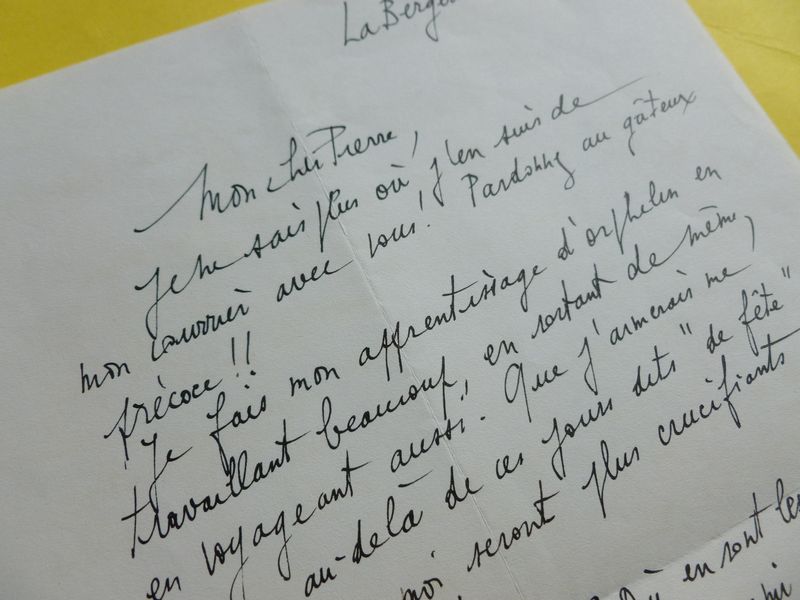 La Berge
Mon cher Pierre,
je ne sais plus où j'en suis de
mon courrier avec vous! Pardonnez au gâteux
précoce!!
Je fais mon apprentissage d'orphelin en
travaillant beaucoup, en sortant de même,
en voyageant aussi. Que j'aimerais me
au-delà de ces jours dits "de fête"
moi seront plus crucifiants
en sont les